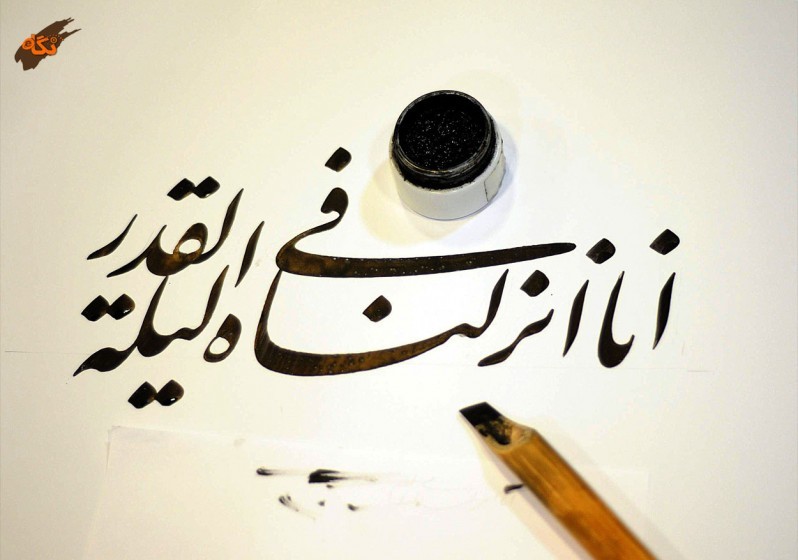 نگاه
انا انزلناه فی لیلة القدر